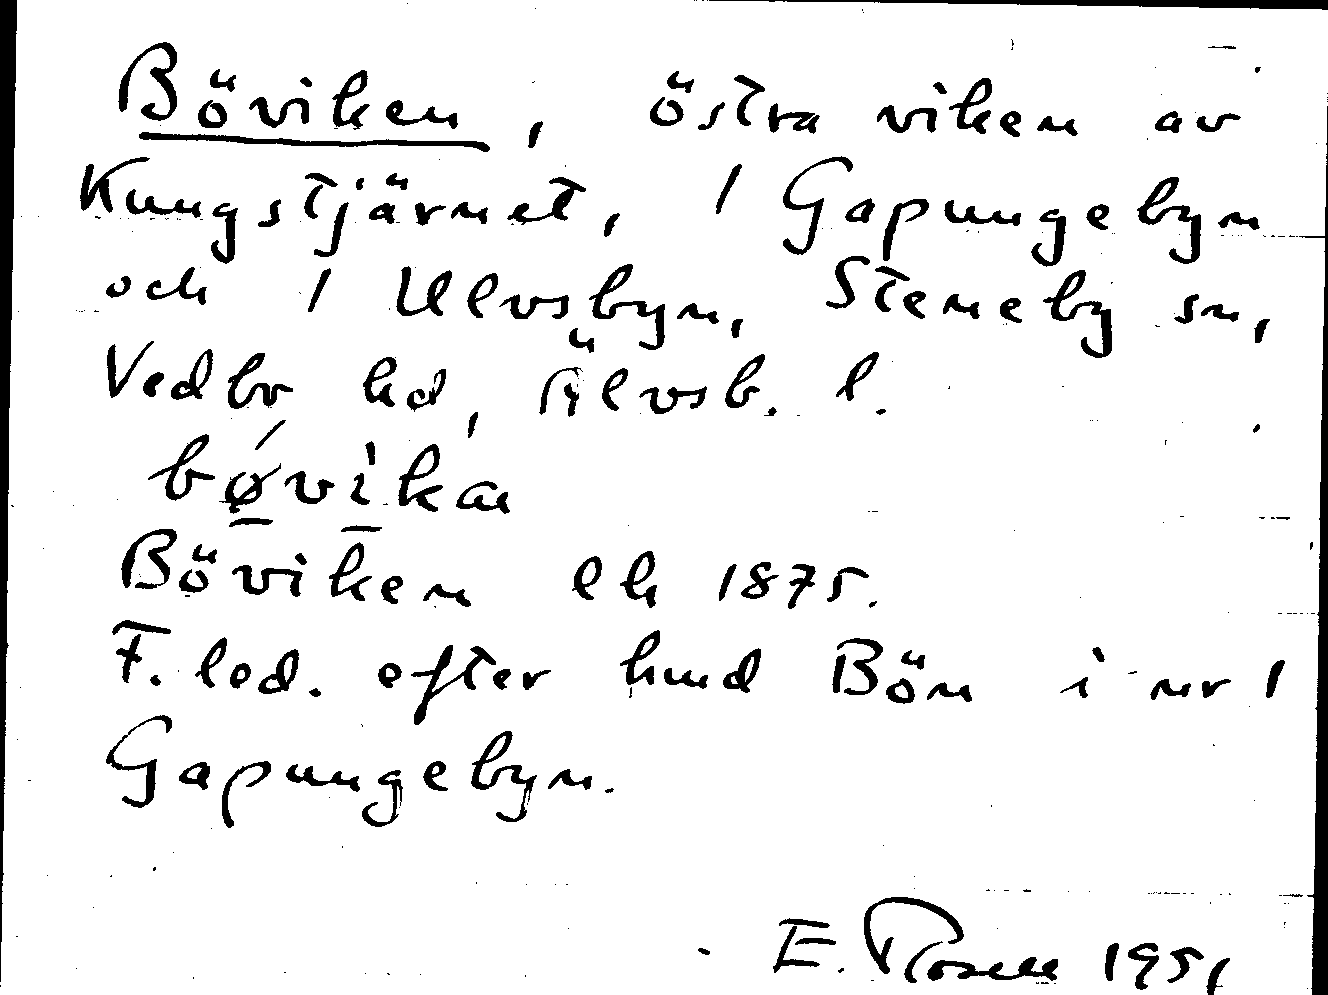 Böviken, östra viken av
Kungstjärnet, 1 Gapungebyn
och 1 Ulvsbyn, Steneby sn,
Vedbo hd, Älvsb. l.
bǿvìkan
Böviken ek 1875.
F. led. efter hmd Bön i nr 1
Gapungebyn.
E. Rosell 1951